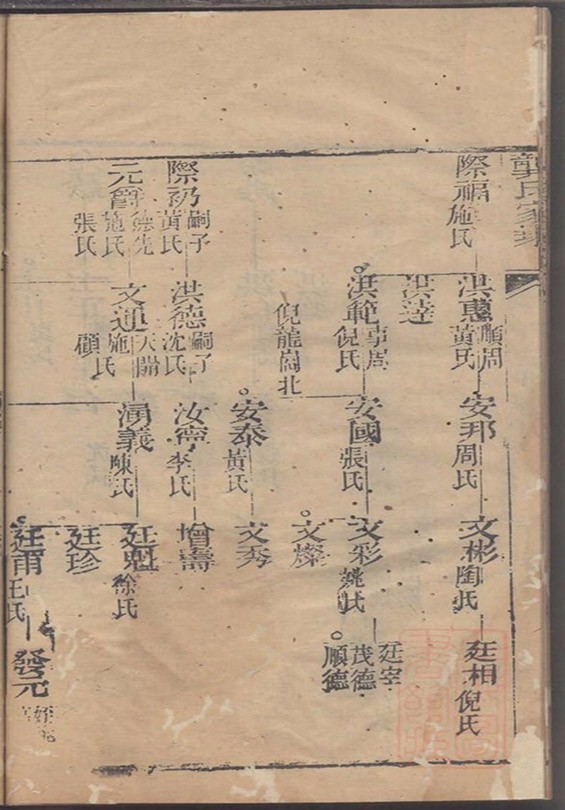 龔氏家乘
際福 施氏
洪惠 順周 黃氏
安邦 周氏
文彬 陶氏
廷相 倪氏
洪逵
洪範 事周 倪氏
安國 張氏
文彩 姚氏
廷宰
茂德
順德
文燦
倪龍崗北
安泰 黃氏
文秀
際礽 嗣子 黃氏
洪德 嗣子 沈氏
汝寧 李氏
增壽
元爵 德先 施氏 張氏
文通 天開 施氏 顧氏
湧義 陳氏
廷魁 徐氏
廷珍
廷甫 王氏
發元